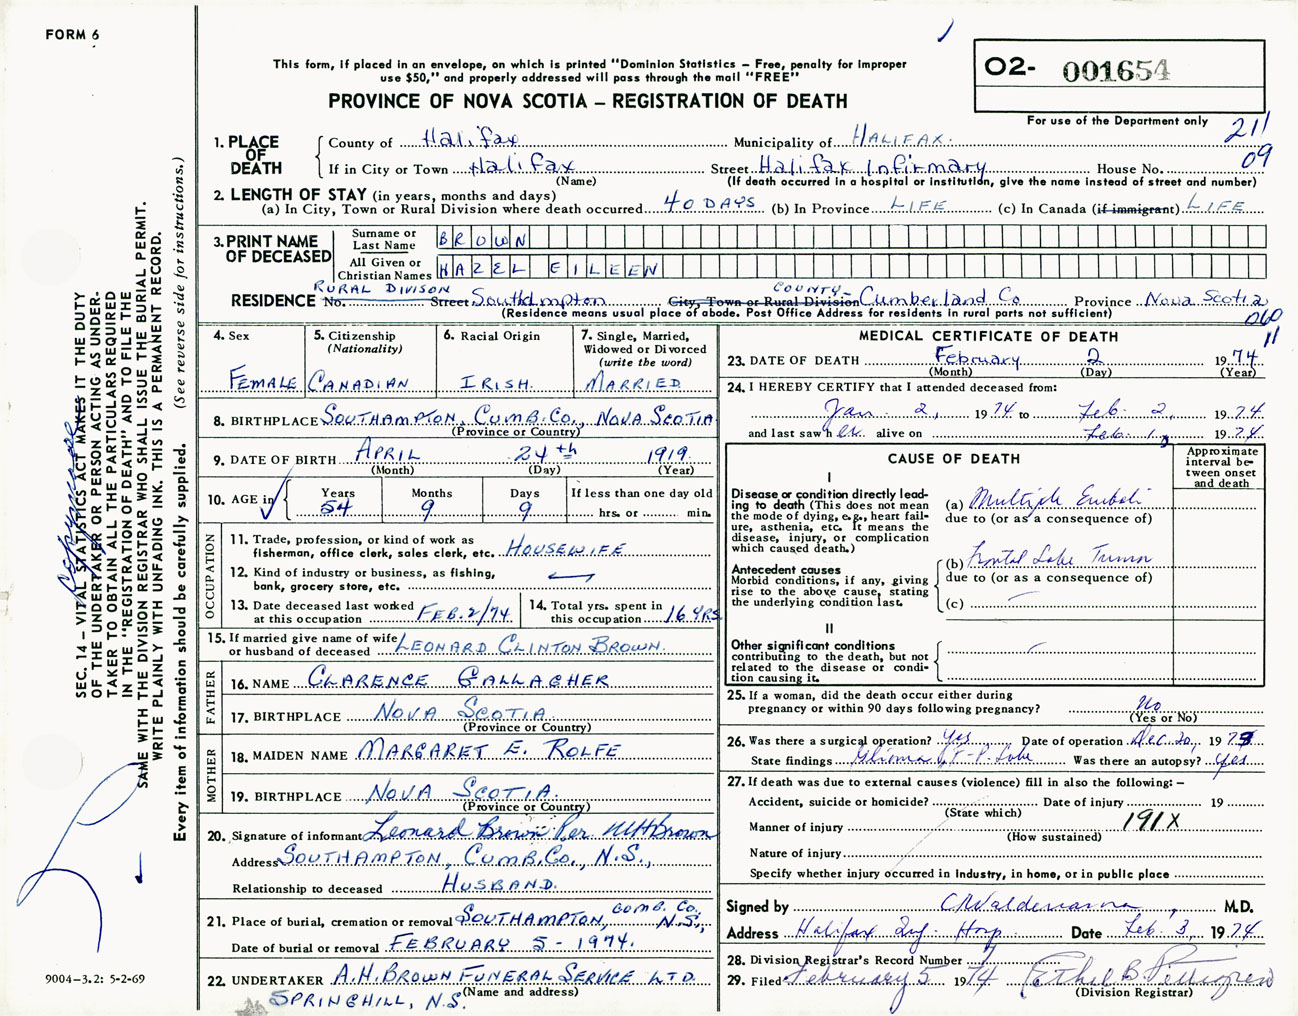 FORM 6
This form, if placed in an envelope, on which is printed "Dominion Statistics – Free, penalty for improper
use $50," and properly addressed will pass through the mail "FREE"
PROVINCE OF NOVA SCOTIA – REGISTRATION OF DEATH
O2- 001654
For use of the Department only
211
09
1. PLACE OF DEATH
County of Halifax Municipality of HALIFAX.
If in City or Town Halifax Street Halifax Infirmary House No.
(Name) (If death occurred in a hospital or institution, give the name instead of street and number)
2. LENGTH OF STAY (in years, months and days)
(a) In City, Town or Rural Division where death occurred 40 DAYS (b) In Province LIFE (c) In Canada (if immigrant) LIFE
3. PRINT NAME OF DECEASED
Surname or Last Name BROWN
All Given or Christian Names HAZEL EILEEN
RURAL DIVISON COUNTY
RESIDENCE No. Street Southampton City, Town or Rural Division Cumberland Co Province Nova Scotia
(Residence means usual place of abode. Post Office Address for residents in rural parts not sufficient)
060
11
4. Sex FEMALE
5. Citizenship (Nationality) CANADIAN
6. Racial Origin IRISH.
7. Single, Married, Widowed or Divorced (write the word) MARRIED
8. BIRTHPLACE SOUTHAMPTON, CUMB. CO., NOVA SCOTIA
(Province or Country)
9. DATE OF BIRTH APRIL 24th 1919.
(Month) (Day) (Year)
10. AGE in Years 54 Months 9 Days 9 If less than one day old
hrs. or min.
OCCUPATION
11. Trade, profession, or kind of work as
fisherman, office clerk, sales clerk, etc. HOUSEWIFE
12. Kind of industry or business, as fishing,
bank, grocery store, etc.
13. Date deceased last worked at this occupation FEB. 2/74
14. Total yrs. spent in this occupation 16 YRS
15. If married give name of wife
or husband of deceased LEONARD CLINTON BROWN.
FATHER
16. NAME CLARENCE GALLAGHER
17. BIRTHPLACE NOVA SCOTIA
(Province or Country)
MOTHER
18. MAIDEN NAME MARGARET E. ROLFE
19. BIRTHPLACE NOVA SCOTIA.
(Province or Country)
20. Signature of informant Leonard Brown Per MHBrown
Address SOUTHAMPTON, CUMB. CO., N.S.,
Relationship to deceased HUSBAND.
21. Place of burial, cremation or removal SOUTHAMPTON, CUMB. CO. N.S.,
Date of burial or removal FEBRUARY 5 - 1974.
22. UNDERTAKER A.H. BROWN FUNERAL SERVICE LTD.
(Name and address)
SPRINGHILL, N.S.
MEDICAL CERTIFICATE OF DEATH
23. DATE OF DEATH February 2 1974
(Month) (Day) (Year)
24. I HEREBY CERTIFY that I attended deceased from:
Jan. 2, 1974 to Feb. 2, 1974
and last saw her alive on Feb. 1, 1974
CAUSE OF DEATH
Approximate interval between onset and death
I
Disease or condition directly leading to death (This does not mean the mode of dying, e.g., heart failure, asthenia, etc. It means the disease, injury, or complication which caused death.)
(a) Multiple Emboli
due to (or as a consequence of)
Antecedent causes
Morbid conditions, if any, giving rise to the above cause, stating the underlying condition last.
(b) Frontal Lobe Tumor
due to (or as a consequence of)
(c)
II
Other significant conditions
contributing to the death, but not related to the disease or condition causing it.
25. If a woman, did the death occur either during
pregnancy or within 90 days following pregnancy? No
(Yes or No)
26. Was there a surgical operation? Yes Date of operation Dec. 20, 1973
State findings Glioma F-P. Lobe Was there an autopsy? Yes
27. If death was due to external causes (violence) fill in also the following: –
Accident, suicide or homicide? Date of injury 19
(State which)
Manner of injury 191X
(How sustained)
Nature of injury
Specify whether injury occurred in industry, in home, or in public place
Signed by M.D.
Address Halifax Inf Hosp Date Feb. 3, 1974
28. Division Registrar's Record Number
29. Filed February 5 1974 Ethel B Pettigrew
(Division Registrar)
SEC. 14 – VITAL STATISTICS ACT MAKES IT THE DUTY
OF THE UNDERTAKER OR PERSON ACTING AS UNDER-
TAKER TO OBTAIN ALL THE PARTICULARS REQUIRED
IN THE "REGISTRATION OF DEATH" AND TO FILE THE
SAME WITH THE DIVISION REGISTRAR WHO SHALL ISSUE THE BURIAL PERMIT.
WRITE PLAINLY WITH UNFADING INK. THIS IS A PERMANENT RECORD.
Every item of information should be carefully supplied. (See reverse side for instructions.)
9004–3.2: 5-2-69